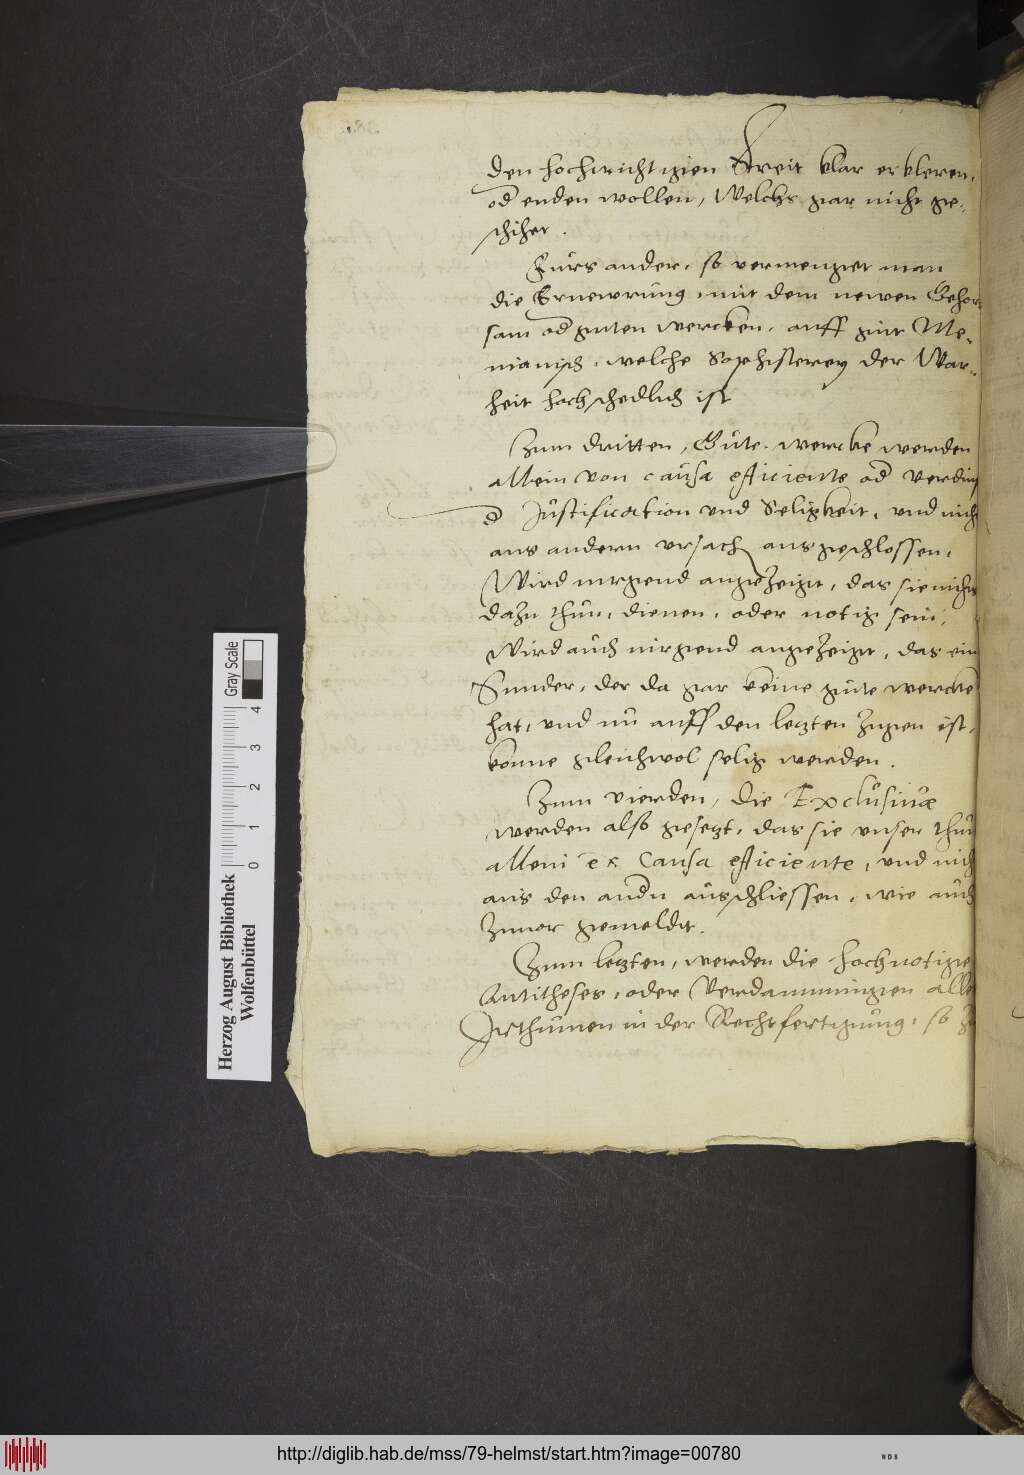 den hochwichtigen Streit klar erkleren,
od enden wollen, Welchs gar nicht ge-
schihet.
Fürs ander, so vermenget man
die Ernewrung, mit dem newen Gehor
sam od guten wercken, auff gut Me-
nianisch, welche Sophisterey der War-
heit hoch schedlich ist
Zum dritten, Gute wercke werden
allein von causa efficiente od verdinst
d Justification und Seligkeit, und nich
aus andern ursach ausgeschlossen,
Wird nirgend angezeigt, das sie nichts
dazu thun, dienen, oder notig sein,
Wird auch nirgend angezeigt, das ein
Sunder, der da gar keine gute wercke
hat, und nu auff den letzten zugen ist,
konne gleichwol selig werden.
Zum vierden, die Exclusiuæ
werden also gesetzt, das sie unser thun
allein ex Causa efficiente, und nich
aus den andn auschliessen, wie auch
zuuor gemeldet.
Zum letzten, werden die hochnotige
Antitheses, oder Verdammungen alle
Irthumen in der Rechtfertigung, so zu
Herzog August Bibliothek
Wolfenbüttel
0 1 2 3 4
Gray Scale
http://diglib.hab.de/mss/79-helmst/start.htm?image=00780